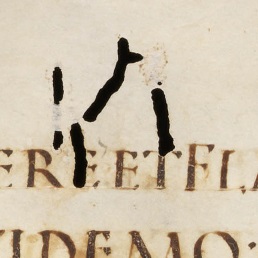 EREETFLA
IDEMO